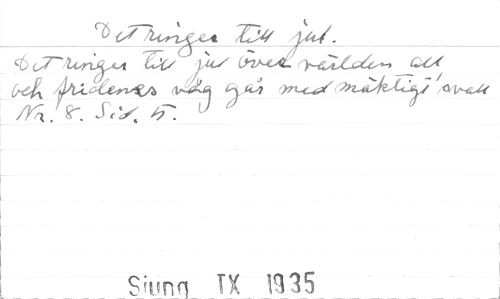 Det ringer till jul.
Det ringer till jul över världen all
och fridens våg går med mäktigt svall
Nr. 8. Sid. 5.
Sjung IX 1935